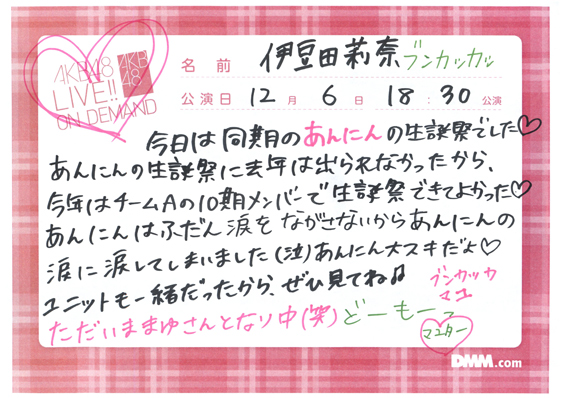 AKB48
LIVE!!
ON DEMAND
AKB
48
名前 伊豆田莉奈ブンカッカッ
公演日 12月 6日 18:30公演
今日は同期のあんにんの生誕祭でした♡
あんにんの生誕祭に去年は出られなかったから、
今年はチームAの10期メンバーで生誕祭できてよかった♡
あんにんはふだん涙をながさないからあんにんの
涙に涙してしまいました(泣)あんにん大スキだよ♡
ユニットも一緒だったから、ぜひ見てね♫
ただいままゆさんとなり中(笑)どーもーっ
ブンカッカ
マユ
マユター
DMM.com